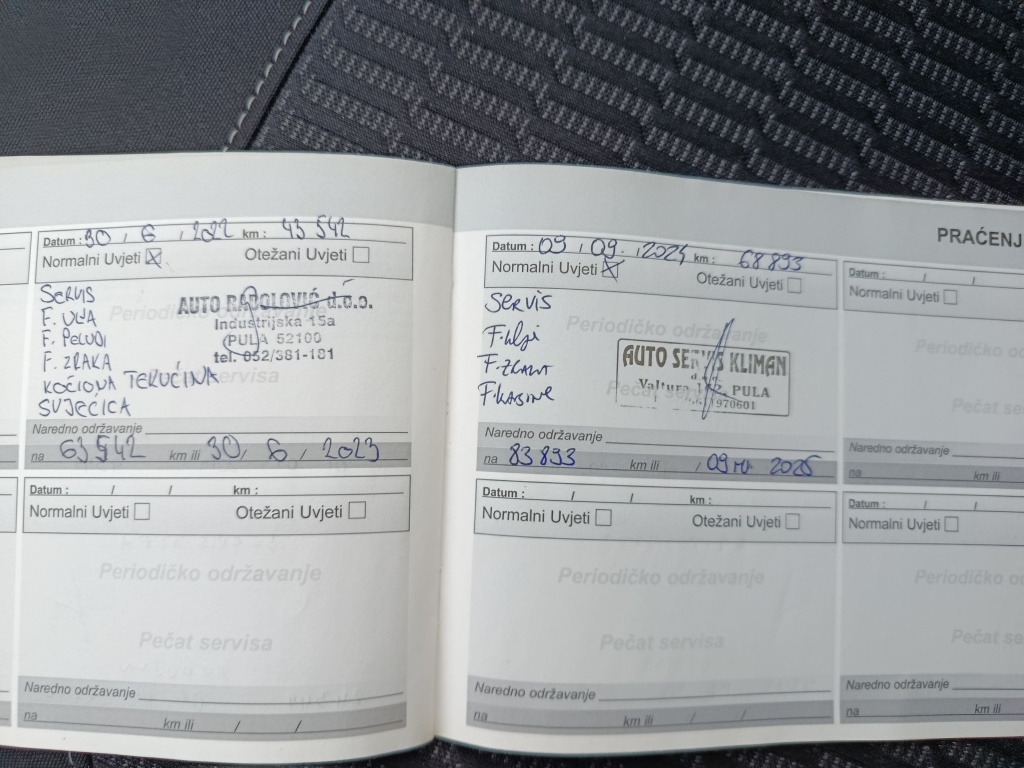 Datum : 30 / 6 / 2022 km : 43 542
Normalni Uvjeti ☒ Otežani Uvjeti ☐
SERVIS
F. ULJA
F. PELUDI
F. ZRAKA
KOČIONA TEKUĆINA
SVJEĆICA
AUTO RADOLOVIĆ d.o.o.
Industrijska 15a
PULA 52100
tel. 052/381-181
Naredno održavanje
na 63 542 km ili 30 / 6 / 2023
Datum : / / km :
Normalni Uvjeti ☐ Otežani Uvjeti ☐
Periodičko održavanje
Pečat servisa
Naredno održavanje
na km ili / /
PRAĆENJ
Datum : 09 / 09. / 2024 km : 68 893
Normalni Uvjeti ☒ Otežani Uvjeti ☐
Periodičko održavanje
SERVIS
F.ulji
F.ZRAKA
F.KABINE
AUTO SERVIS KLIMAN
Valtura PULA
Naredno održavanje
na 83 893 km ili / 09 2025
Datum : / / km :
Normalni Uvjeti ☐ Otežani Uvjeti ☐
Periodičko održavanje
Pečat servisa
Naredno održavanje
na km ili / /
Datum : / /
Normalni Uvjeti ☐
Periodičko od
Pečat se
Naredno održavanje
na km ili
Datum : / /
Normalni Uvjeti ☐
Periodičko od
Pečat se
Naredno održavanje
na km ili